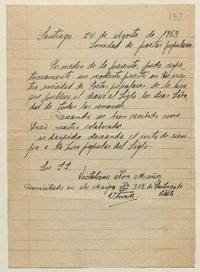 132
Santiago 24 de Agosto de 1953
Sociedad de poetas populares
Por medio de la presente, pido respe
tuosamente, un modesto puesto en
sociedad de Poetas populares de la
publica el diario el Siglo los dias
de todas las semanas.
Deseando ser bien recibido como
nuestro colaborador
se despide deseando el exito de siem
pre a la Lira popular del Siglo.
Su SS.
Muñoz
Domiciliado en de Maipo Nº 378 de Santiago de
Chile